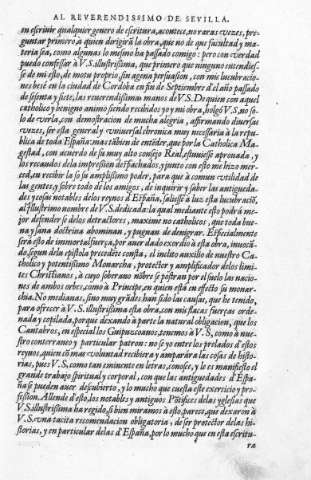 AL REVERENDISSIMO DE SEVILLA.
en escriuir qualquier genero de escritura, acontece, no raras vezes, pre-
guntar primero a quien dirigirã la obra, que no de que facultad y ma-
teria sea, como algunas lo mesmo ha passado comigo: pero con verdad
puedo confessar a V.S. illustrissima, que primero que ninguno entendies-
se de mi esto, de motu proprio, sin agena persuasion, con mis lucubracio-
nes besè en la ciudad de Cordoua en fin de Septiembre del año passado
de sesenta y siete, las reuerendissimas manos de V.S. De quien con aquel
catholico y benigno animo siendo recebidas yo y mi obra, holgò V.S. no so-
lo de verla, con demostracion de mucha alegria, affirmando diuersas
vezes, ser esta general y vniuersal chronica muy necessaria a la repu-
blica de toda España: mas tãbien de entẽder, que por la Catholica Ma-
gestad, con acuerdo de su muy alto consejo Real, estuuiesse aprouada, y
los recaudos dela impression despachados: y junto con esto me hizo mer-
ced, en recibir la so su amplissimo poder, para que à comun vtilidad de
las gentes, y sobre todo de los amigos, de inquirir y saber las antigueda-
des y cosas notables delos reynos d'España, saliesse à luz esta lucubraciõ,
al illustrissimo nombre de V.S. dedicada: la qual mediante esto podrà me-
jor defender se delos detractores, maxime no catholicos, que toda bue-
na y sana doctrina abominan, y pugnan de denigrar. Especialmente
serà esto de immortal fuerça, por auer dado exordio à esta obra, inuocã-
do segun dela epistola precedẽte consta, el inclito auxilio de nuestro Ca-
tholico y potentissimo Monarcha, protector y amplificador delos limi-
tes Christianos, à cuyo soberano nõbre se postran por el suelo las nacio-
nes de ambos orbes, como à Principe, en quien està en effecto su monar-
chia. No medianas, sino muy grãdes han sido las causas, que he tenido,
para ofrecer à V.S. illustrissima esta obra, con mis flacas fuerças orde-
nada y copilada, porque dexando à parte la natural obligacion, que los
Cantabros, en especial los Guipuzcoanos, tenemos à V.S. como à nue-
stro conterraneo y particular patron: no se yo entre los prelados d'estos
reynos, quien cõ mas voluntad recibiera y amparara las cosas de histo-
rias, pues V.S. como tan eminente en letras, conosce, y le es manifiesto el
grande trabajo spiritual y corporal, con que las antiguedades d'Espa-
ña se pueden auer descubierto, y lo mucho que cuesta este exercicio y pro-
fession. Allende d'esto, los notables y antiguos Põtifices delas yglesias que
V.S. illustrissima ha regido, si bien miramos à esto, parece, que dexaron à
V.S. vna tacita recomendacion obligatoria, de ser protector delas hi-
storias, y en particular delas d'España, por lo mucho que en esta escritu-
ra